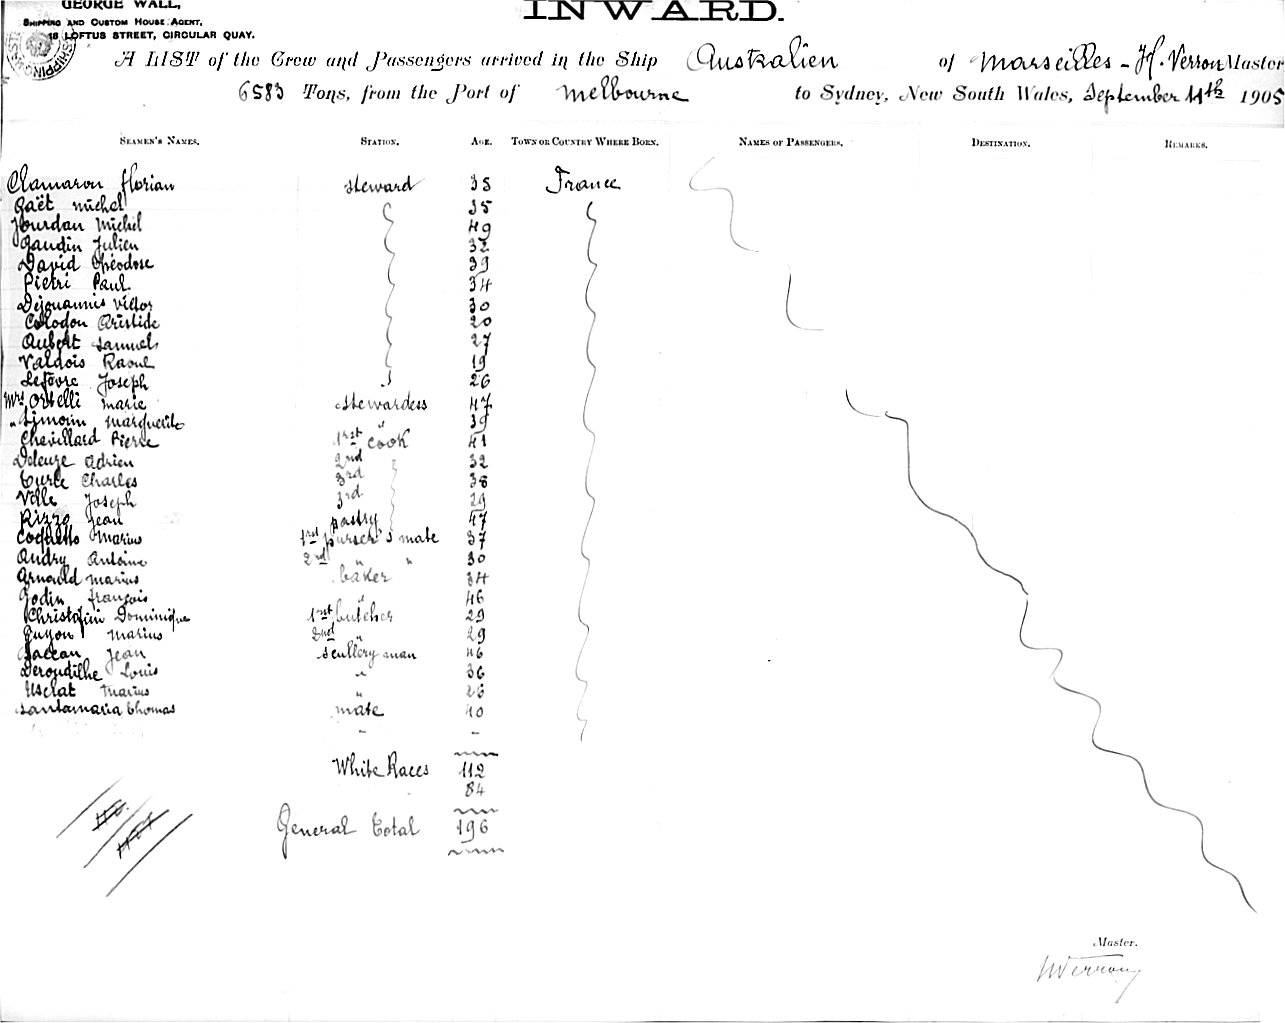 GEORGE WALL,
SHIPPING AND CUSTOM HOUSE AGENT,
18 LOFTUS STREET, CIRCULAR QUAY.
INWARD.
A LIST of the Crew and Passengers arrived in the Ship Australien of Marseilles - H. Verron Master
6583 Tons, from the Port of Melbourne to Sydney, New South Wales, September 11th 1905
SEAMEN'S NAMES. STATION. AGE. TOWN OR COUNTRY WHERE BORN. NAMES OF PASSENGERS. DESTINATION. REMARKS.
Clamaron Florian steward 35 France
Gaët Michel 35
Jourdan Michel 49
Gaudin Julien 32
David Théodose 39
Pietri Paul 34
Dejouannis Victor 30
Colodon Aristide 20
Aubert Samuel 27
Valdois Raoul 19
Lefèvre Joseph 26
Mrs Orselli Marie stewardess 47
" Simonin Marguerite " 39
Chevillard Pierre 1rst cook 41
Deleuze Adrien 2nd 32
Curle Charles 3rd 38
Velle Joseph 3rd 29
Rizzo Jean pastry 47
Marius 1rst purser's mate 37
Audry Antoine 2nd " " 30
Arnould Marius baker 34
Godin François " 46
Khristofini Dominique 1rst butcher 29
Guyon Marius 2nd " 29
Jean scullery man 46
Deroudilhe Louis " 36
Usclat Marius " 26
Santamaria Thomas mate 40
White Races 112
84
General Total 196
Master.
HVerron